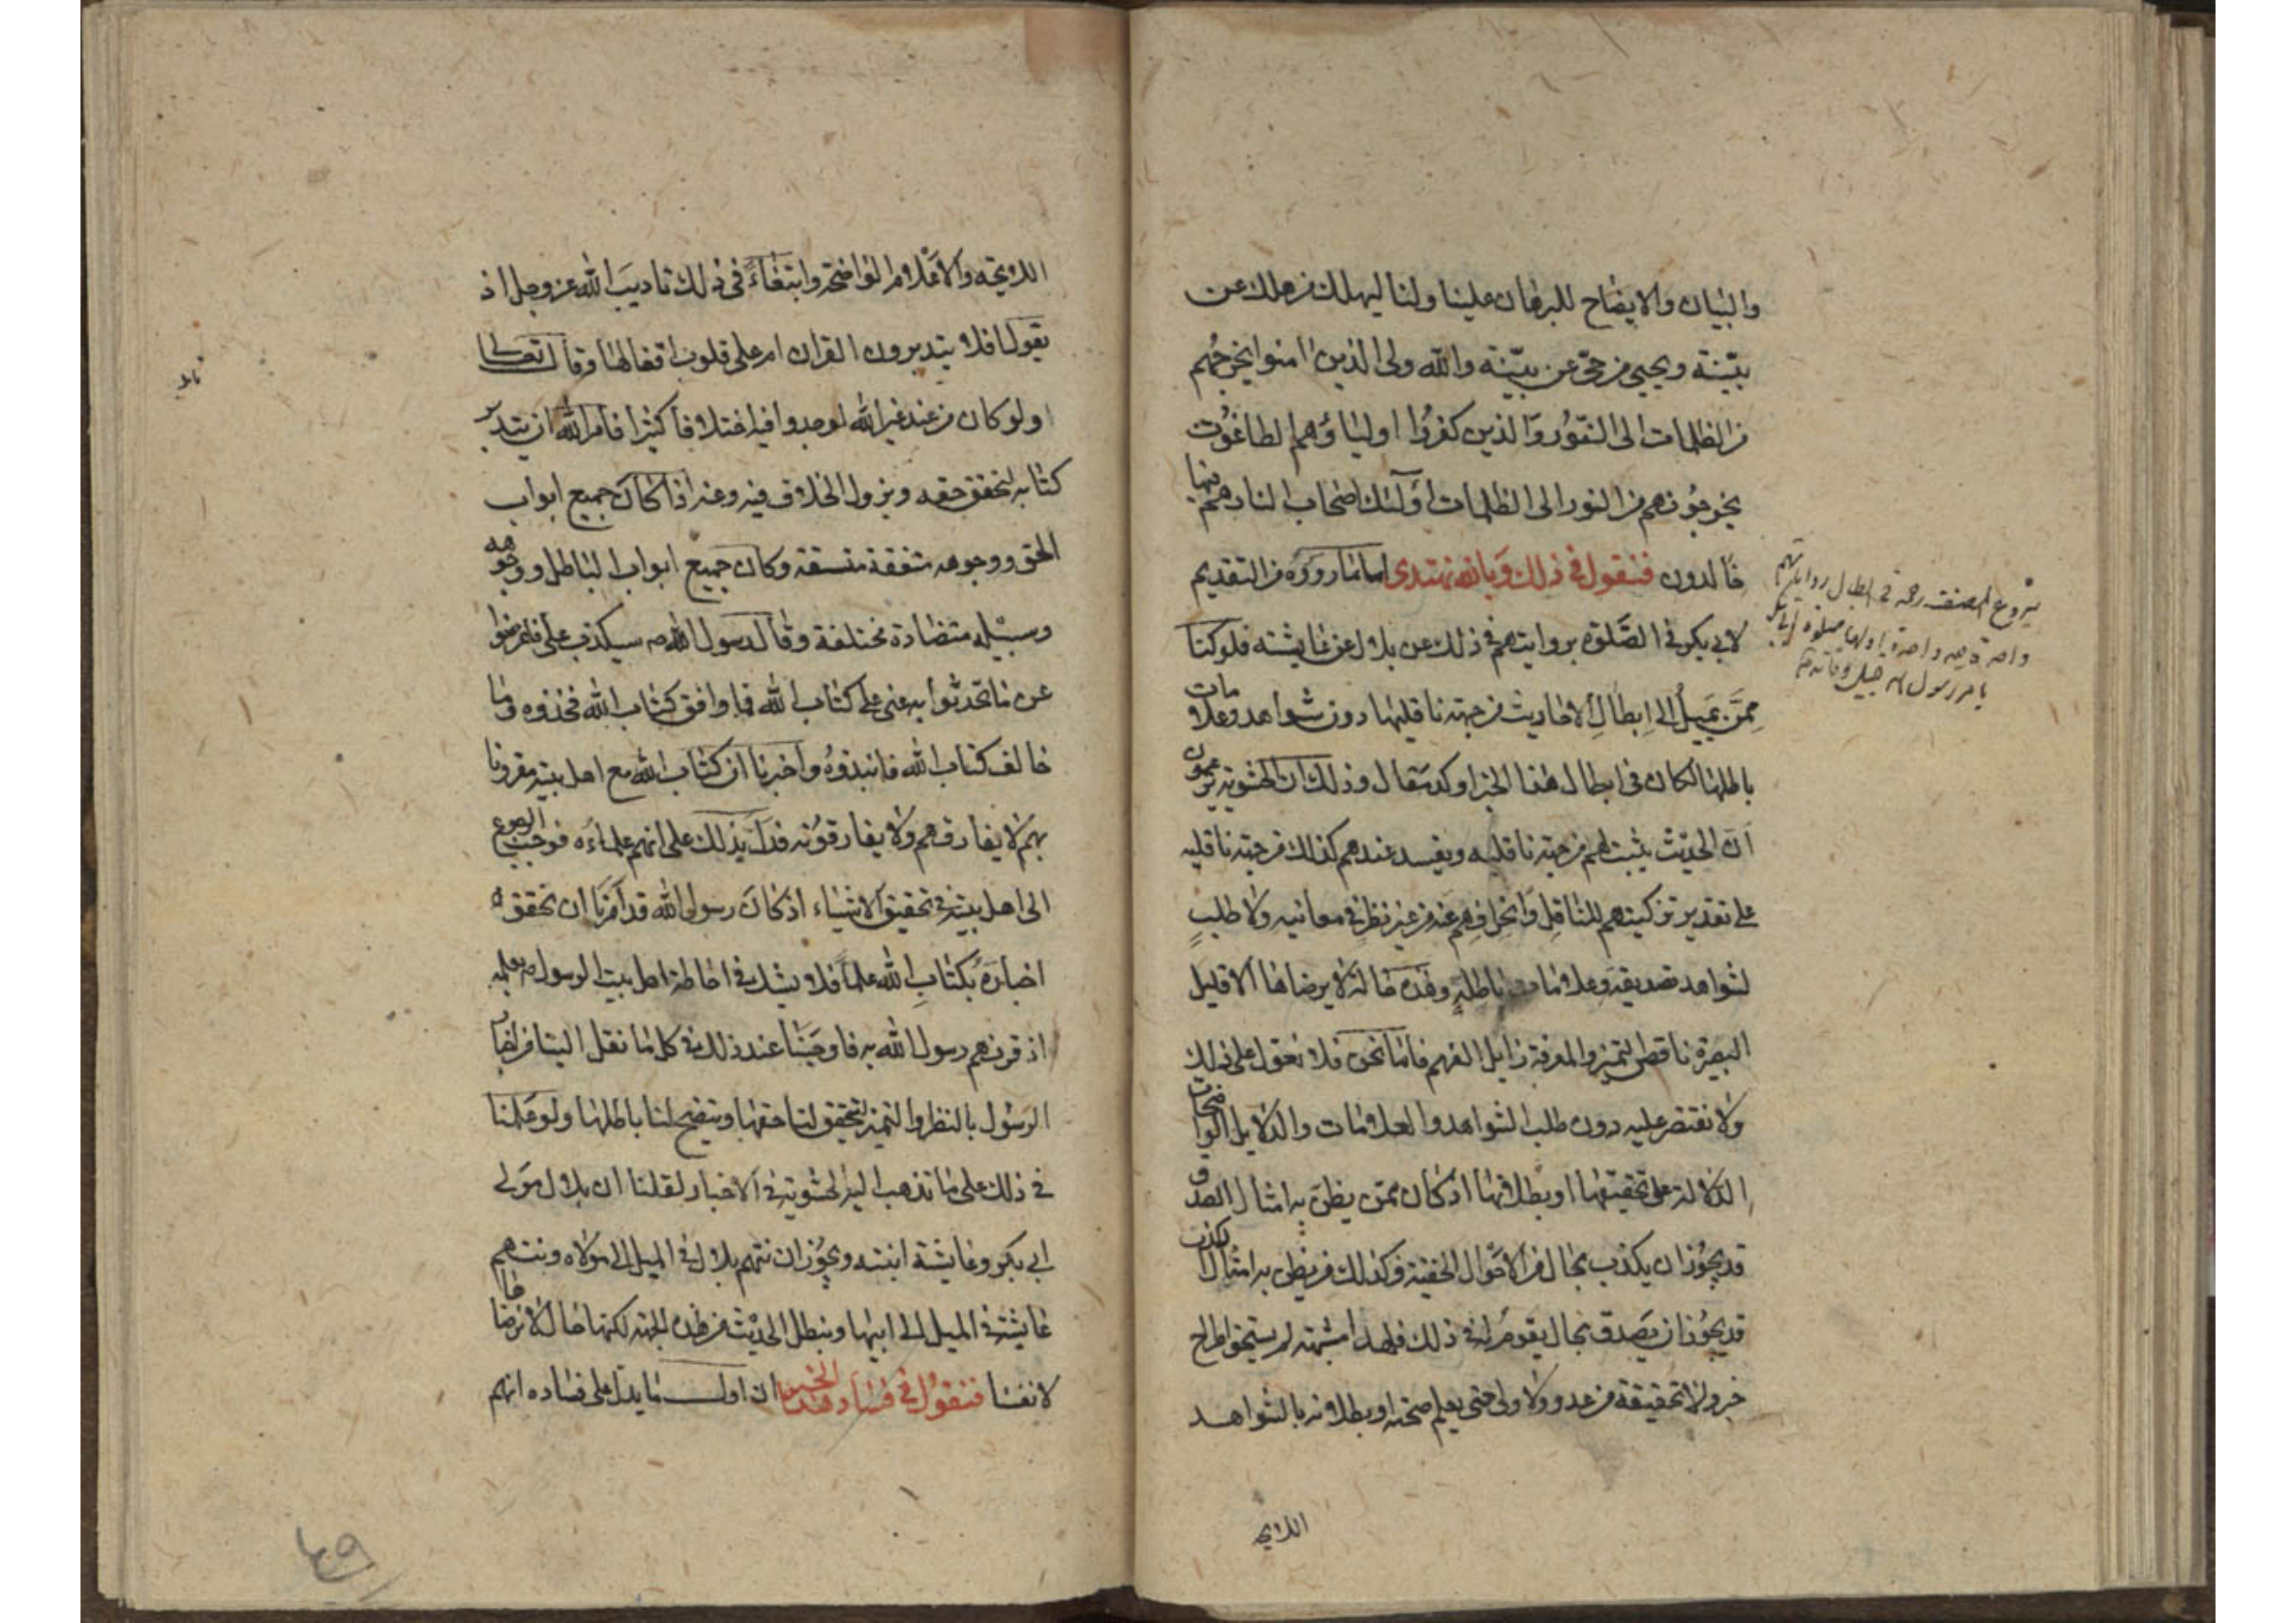 والبيان والايضاح للبرهان علينا ولنا ليهلك من هلك عن
بيّنة ويحيى من حىّ عن بيّنة والله ولى الذين امنوا يخرجهم
من الظلمات الى النّور والذين كفروا اولياؤهم الطاغوت
يخرجونهم من النور الى الظلمات اولئك اصحاب النار هم فيها
خالدون فنقول فى ذلك وبالله نهتدى اما ما رووه من التقديم
لابى بكر فى الصّلوة بروايتهم فى ذلك عن بلال عن عايشة فلو كنا
ممّن يميل الى ابطال الاحاديث من جهة ناقليها دون شواهد وعلامات
باطلها لكان فى ابطال هذا الخبر اوكد مقال وذلك ان الحشوية يزعمون
ان الحديث يثبت لهم من جهة ناقليه ويفسد عندهم كذلك من جهة ناقليه
على تقدير تزكيتهم للناقل وانحرافهم عنه من غير نظر فى معانيه ولا طلب
لشواهد تصديقه وعلامات باطله وهذه حالة لا يرضاها الا قليل
البصيرة ناقص التميز والمعرفة زايل الفهم فاما نحن فلا نعول على ذلك
ولا نقتصر عليه دون طلب الشواهد والعلامات والدلايل الواضحات
الدلالة على تحقيقها او بطلانها اذ كان ممن يظن به امثال الصدق
قد يجوز ان يكذب بحال من الاحوال الخفية وكذلك من يظن به امثال الكذب
قد يجوز ان يصدق بحال يقوم له فى ذلك فلهذا لم يستحق اطراح
خبر ولا تحقيقة من عدو ولا ولى حتى يعلم صحته او بطلانه بالشواهد
اللايح
شروع المصنف رحمه فى ابطال رواياتهم
واحدة بعد واحدة اولها صلوة ابى بكر
بامر رسول الله
اللايحة والاعلام الواضحة وابتغاء فى ذلك تاديب الله عز وجل اذ
يقول افلا يتدبرون القران ام على قلوب اقفالها وقال تعالى
ولو كان من عند غير الله لوجدوا فيه اختلافا كثيرا فامر الله ان يتدبر
كتابه لتحقق حقه ويزول الخلاف فيه وعنه اذا كان جميع ابواب
الحق ووجوهه متفقة متسقة وكان جميع ابواب الباطل ووجوهه
وسبيله متضادة مختلفة وقال رسول الله ص سيكذب على فاعرضوا
عن ما تحدثوا به عنى على كتاب الله فما وافق كتاب الله فخذوه وما
خالف كتاب الله فانبذوه واخبرنا ان كتاب الله مع اهل بيته مقرونا
بهم لا يفارقهم ولا يفارقونه فدل بذلك على انهم علماؤه فوجب الرجوع
الى اهل بيته فى تحقيق الاشياء اذ كان رسول الله قد امرنا ان نحقق
اخباره بكتاب الله علما فلا يشك فى احاطة اهل بيت الرسول ص بعلمه
اذ قرنهم رسول الله به فاوجبنا عند ذلك فى كل ما نقل الينا من اخبار
الرسول بالنظر والتميز لتحقق لنا حقها ويتضح لنا باطلها ولو عملنا
فى ذلك على ما تذهب اليه الحشوية فى الاخبار لقلنا ان بلال مولى
ابى بكر وعايشة ابنته ويجوز ان نتهم بلال فى الميل الى مولاه ونتهم
عايشة فى الميل الى ابيها ونبطل الحديث من هذه الجهة لكنها حال لا نرضاها
لانفسنا فنقول فى فساد هذا الخبر ان اول ما يدل على فساده انهم